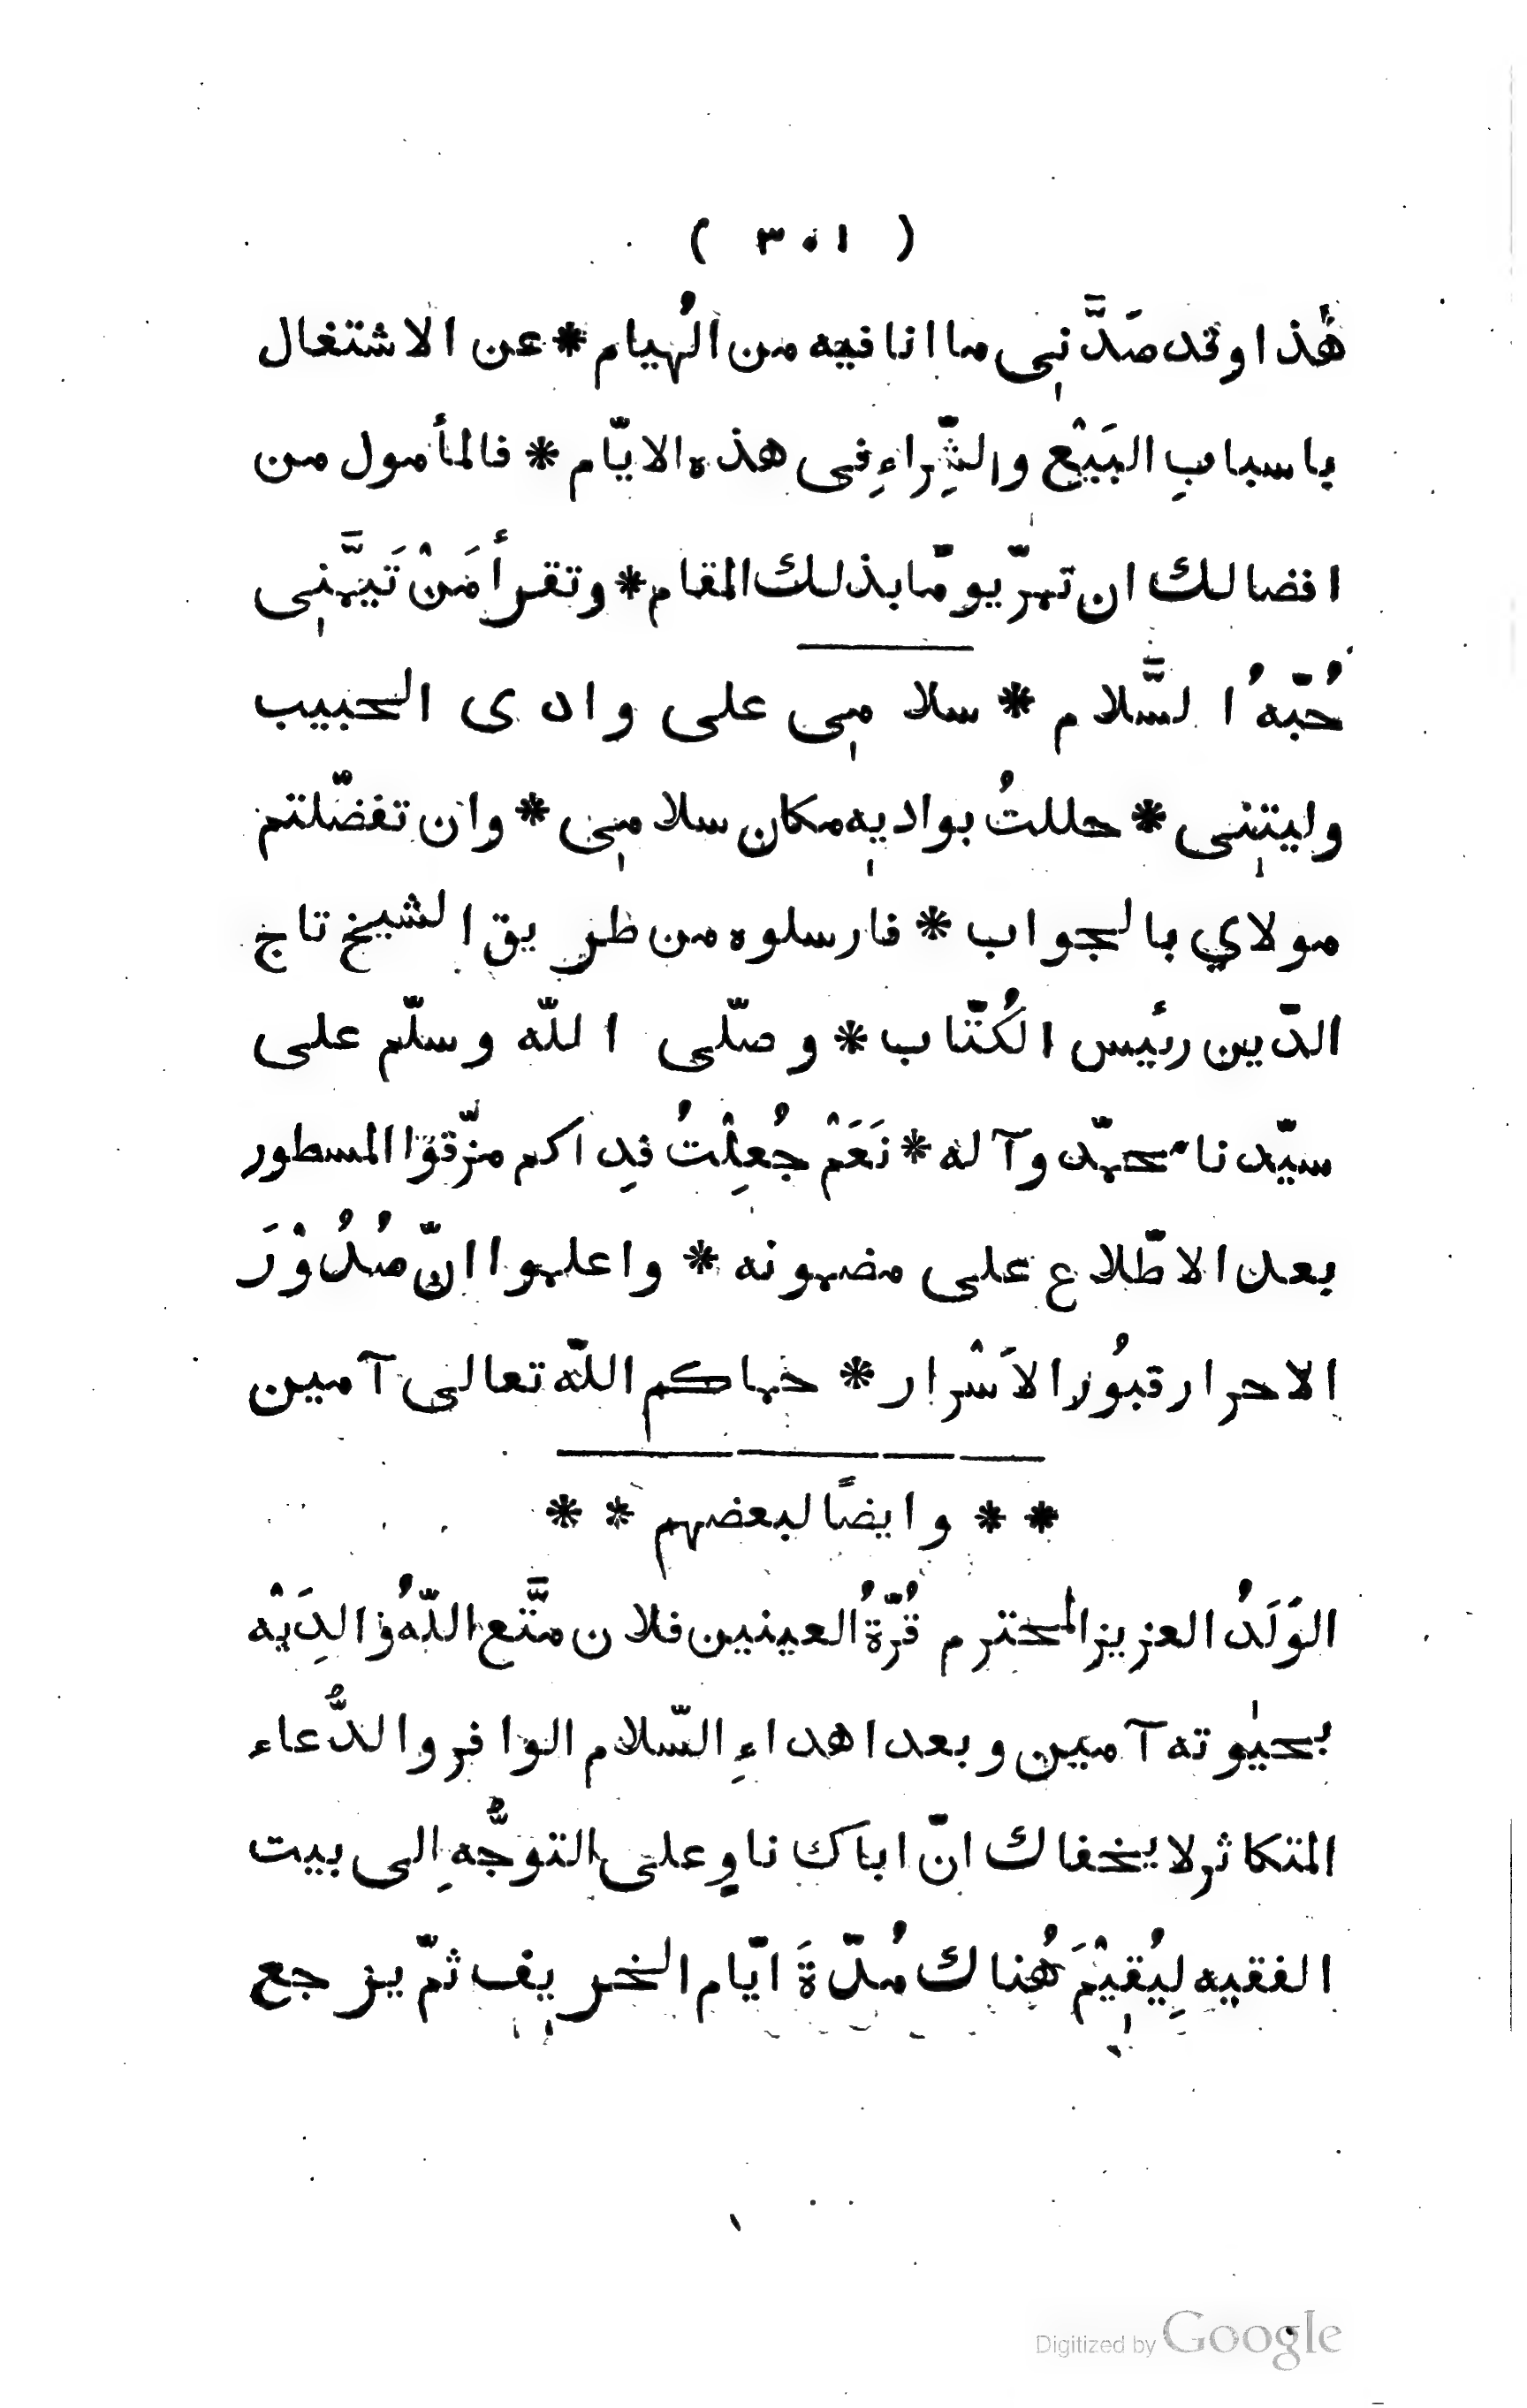 ( ٣٠١ )
هٰذا وقد صَدَّنِي ما انا فيه من الُهيام * عن الاشتغال
باسبابِ البَيْع والشِّراءِ فِى هذه الايّام * فالمأمول من
افضالك ان تمرّ يومًا بذلك المقام * وتقرأ مَنْ تَيَّمَنِى
حُبّهُ السَّلام * سلامِى على وادى الحبيب
وليتنِى * حللتُ بواديه مكان سلامِى * وان تفضّلتم
مولاي بالجواب * فارسلوه من طريق الشيخ تاج
الدّين رئيس الكُتّاب * وصلّى اللّه وسلّم على
سيّدنا محمّد وآله * نَعَمْ جُعِلْتُ فِداكم مزّقوْا المسطور
بعد الاطّلاع على مضمونه * واعلموا انّ صُدُوْرَ
الاحرار قبُور الاَسْرار * حماكم اللّه تعالى آمين
* * وايضًا لبعضهم * *
الوَلَدُ العزيز المحترم قُرّةُ العينين فلان متَّع اللّهُ والدِيَْه
بحيٰوته آمين وبعد اهداءِ السّلام الوافر والدُّعاء
المتكاثر لا يخفاك انّ اباك ناوٍ على التوجُّهِ الى بيت
الفقيه لِيُقِيْمَ هُناك مُدّةَ ايّام الخريف ثمّ يرجع
Digitized by Google